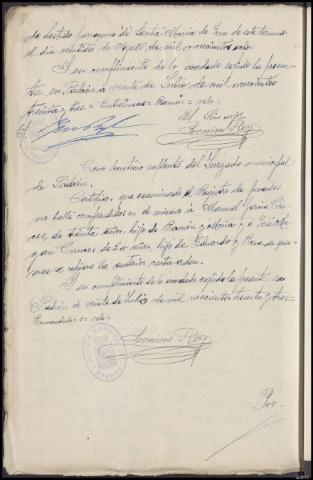 de Lestido parroquia de Santa María de Iria de este termino
el dia veintidos de Agosto de mil novecientos
Y en cumplimiento de lo acordado expido la presen-
te en Padrón a veinte de Julio de mil novecientos
treinta y tres = Enmendadas = = vale =
El Srio sup
Severino Rey
Como Secretario suplente del Juzgado municipal
de Padrón.
Certifico: que examinado el Registro de penados
no hallé comprendidos en el mismo á Manuel García
de treinta años, hijo de Ramon y Maria; y á José
de años, hijo de Eduardo y Rosa á quie-
nes se refiere la anterior carta-orden.
Y en cumplimiento de lo acordado expido la presente en
Padrón á veinte de Julio de mil novecientos treinta y tres.
Enmendado = = vale =
Severino Rey
Pro-